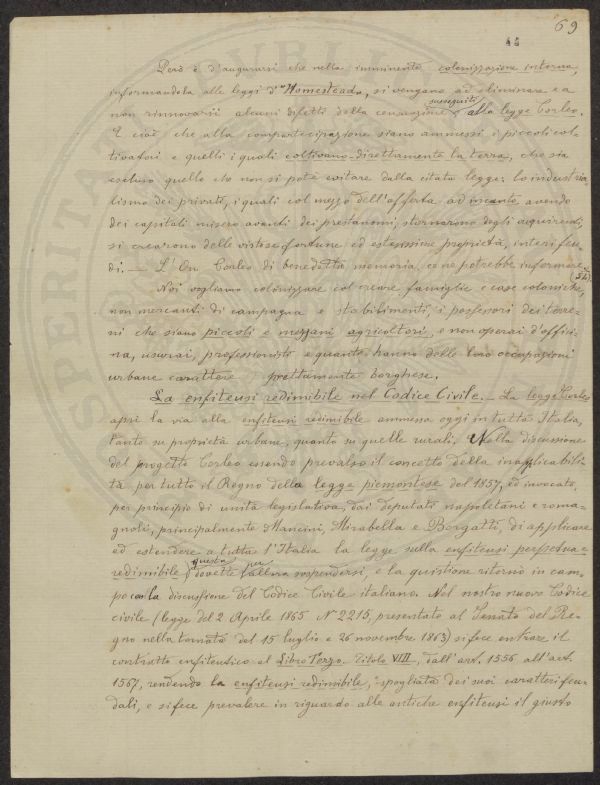 69
45
Però è d'augurarsi che nella imminente colonizzazione interna,
informandola alle leggi d'"Homestead", si vengano ad eliminare e a
non rinnovarsi alcuni difetti della censuazione susseguiti alla legge Corleo.
E cioè che alla compartecipazione siano ammessi i piccoli col-
tivatori e quelli i quali coltivano direttamente la terra, che sia
escluso quello che non si poté evitare dalla citata legge: lo industria-
lismo dei privati, i quali col mezzo dell'offerta ad incanto, avendo
dei capitali misero avanti dei prestanomi, stornarono degli acquirenti,
si crearono delle vistose fortune ed estensive proprietà, interi feu-
di. — L'On Corleo di benedetta memoria, ce ne potrebbe informare.
Noi vogliamo colonizzare col creare famiglie e case coloniche,
non mercanti di campagna e stabilimenti, i possessori dei terre-
ni che siano piccoli e mezzani agricoltori, e non operai d'offici-
na, usurai, professionisti e quanti hanno delle loro occupazioni
urbane carattere prettamente borghese.
La enfiteusi redimibile nel Codice Civile. — La legge Corleo
aprì la via alla enfiteusi redimibile ammessa oggi in tutta Italia,
tanto su proprietà urbane, quanto su quelle rurali. Nella discussione
del progetto Corleo essendo prevalso il concetto della inapplicabili-
tà per tutto il Regno della legge piemontese del 1857, ed invocato,
per principio di unità legislativa, dai deputati napoletani e roma-
gnoli, principalmente Mancini, Mirabella e Borgatti, di applicare
ed estendere a tutta l'Italia la legge sulla enfiteusi perpetua-
redimibile, questa dovette per allora sospendersi, e la quistione ritornò in cam-
po con la discussione del Codice Civile italiano. Nel nostro nuovo Codice
civile (legge del 2 Aprile 1865 N 2215, presentato al Senato del Re-
gno nella tornata del 15 luglio e 26 novembre 1863) si fece entrare il
contratto enfiteutico al Libro Terzo - Titolo VIII, dall'art. 1556 all'art.
1567, rendendo la enfiteusi redimibile, spogliata dei suoi caratteri feu-
dali, e si fece prevalere in riguardo alle antiche enfiteusi il giusto